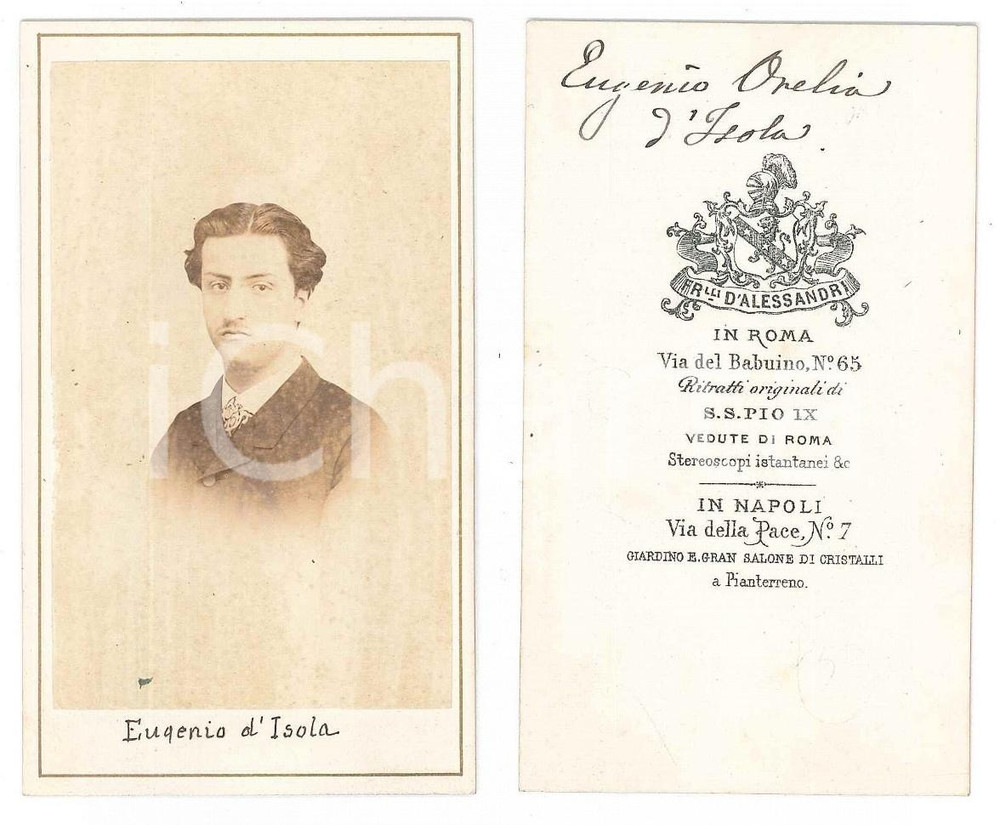 Eugenio d'Isola
Eugenio Orelia
d'Isola.
FRLLI D'ALESSANDRI
IN ROMA
Via del Babuino, Nº 65
Ritratti originali di
S.S. PIO IX
VEDUTE DI ROMA
Stereoscopi istantanei &c
IN NAPOLI
Via della Pace, Nº 7
GIARDINO E. GRAN SALONE DI CRISTALLI
a Pianterreno.